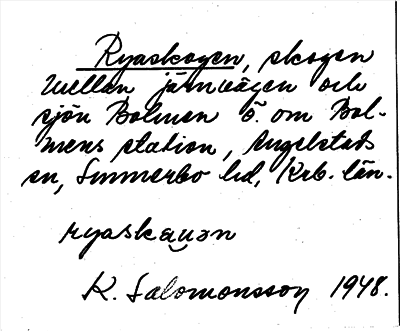 Ryaskogen, skogen
mellan järnvägen och
sjön Bolmen ö. om Bol-
mens station, Angelstads
sn, Sunnerbo hd, Krb. län.
ryaskauən
K. Salomonsson 1948.